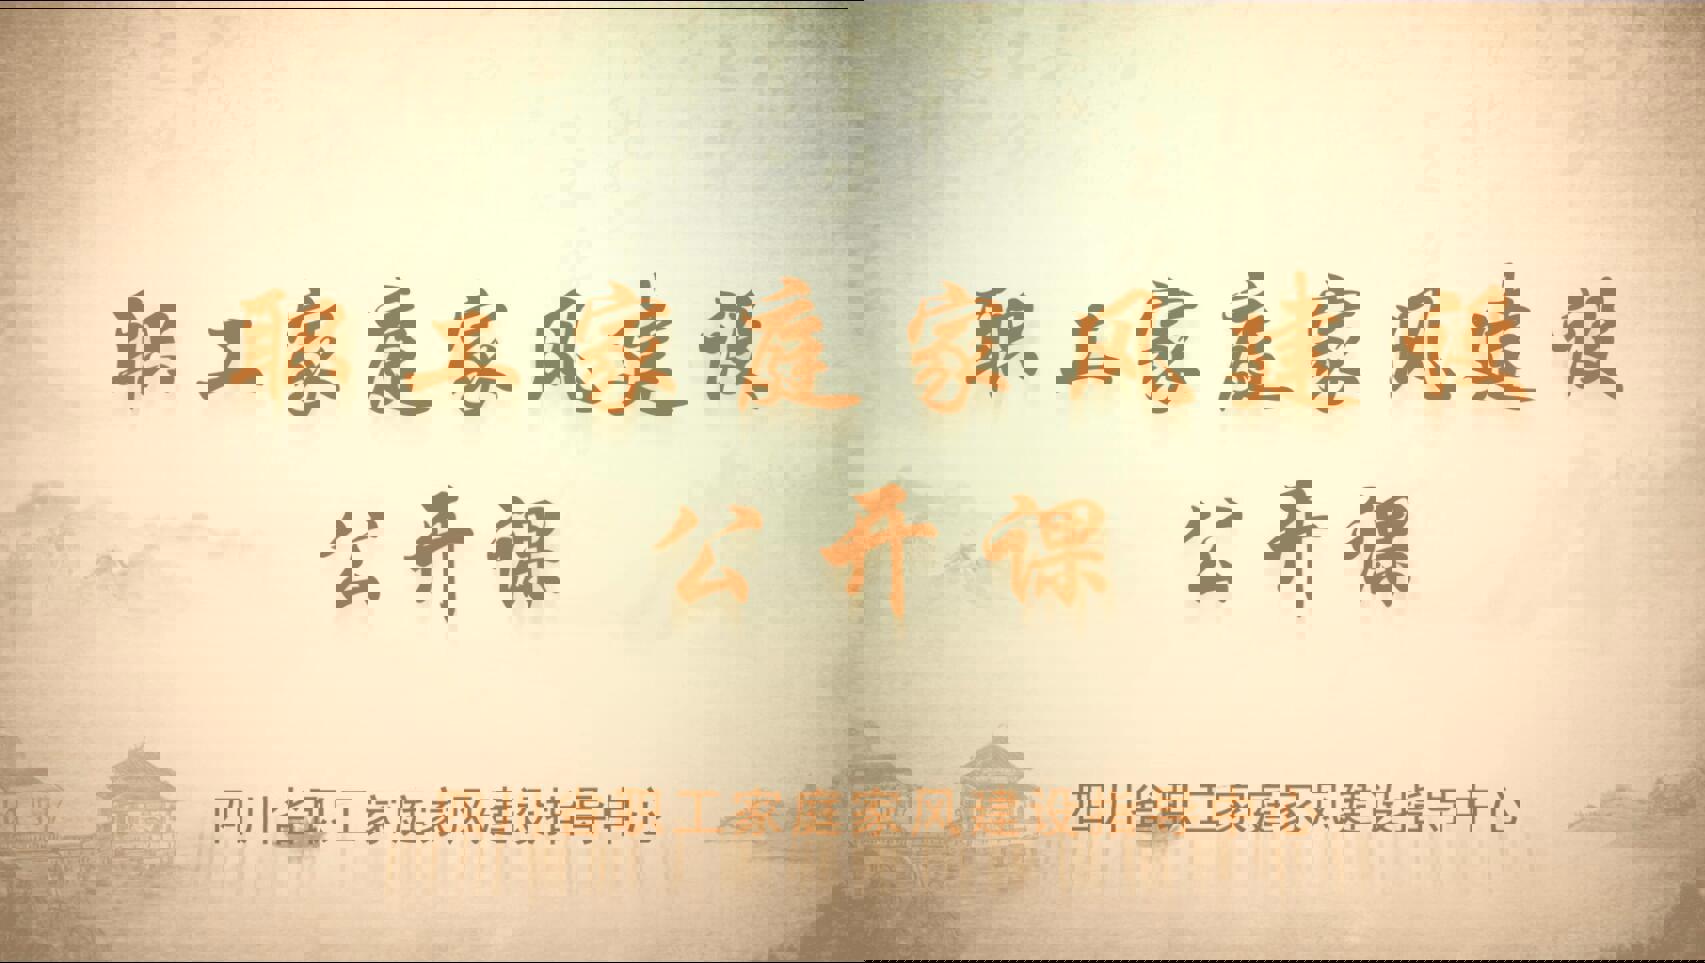 职工家庭家风建设
公开课
四川省职工家庭家风建设指导中心